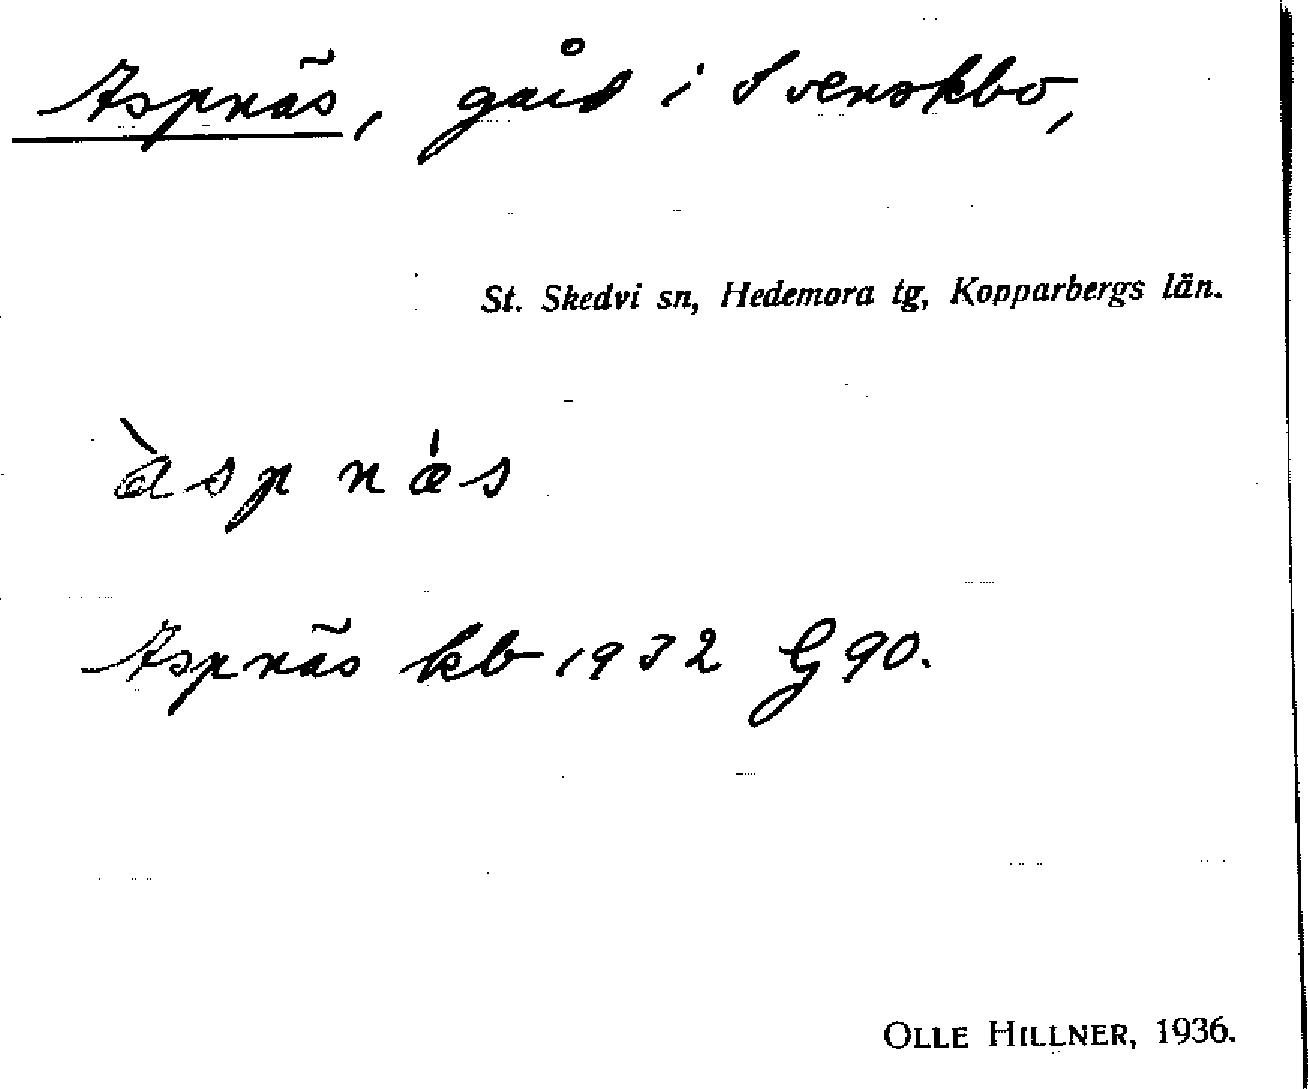 Aspnäs, gård i Svenskbo,
St. Skedvi sn, Hedemora tg, Kopparbergs län.
àsp næ̍s
Aspnäs kb 1932 G 90.
OLLE HILLNER, 1936.